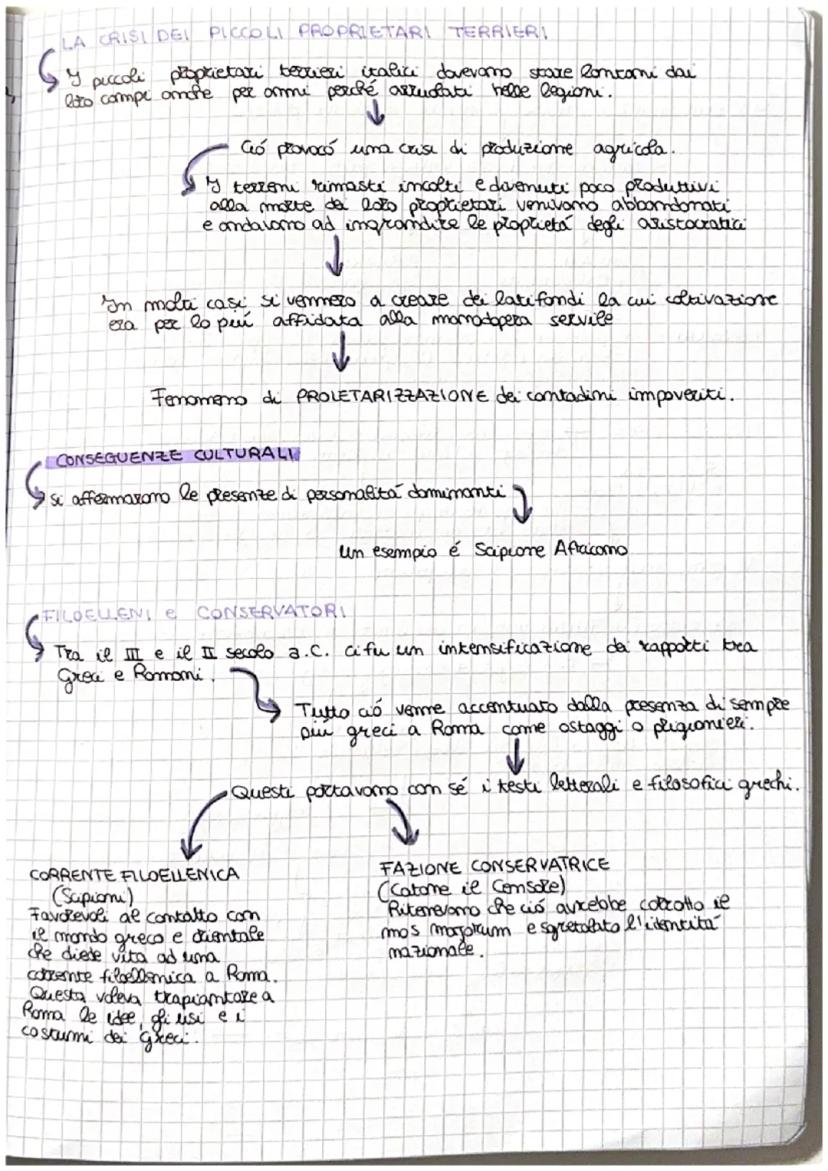 LA CRISI DEI PICCOLI PROPRIETARI TERRIERI
I piccoli proprietari terrieri italici dovevano stare lontani dai
loro campi anche per anni perché arruolati nelle legioni.
Ció provocó una crisi di produzione agricola.
I terreni rimasti incolti e divenuti poco produttivi
alla morte dei loro proprietari venivano abbandonati
e andavano ad ingrandire le proprietá degli aristocratici
In molti casi si vennero a creare dei latifondi la cui coltivazione
era per lo piú affidata alla manodopera servile
Fenomeno di PROLETARIZZAZIONE dei contadini impoveriti.
CONSEGUENZE CULTURALI
si affermarono le presenze di personalitá dominanti
Un esempio é Scipione Africano
FILOELLENI e CONSERVATORI
Tra il III e il II secolo a.C. ci fu un intensificazione dei rapporti tra
Greci e Romani.
Tutto ció venne accentuato dalla presenza di sempre
piú greci a Roma come ostaggi o prigionieri.
Questi portavano con sé i testi letterali e filosofici grechi.
CORRENTE FILOELLENICA
(Scipioni)
Favorevoli al contatto con
il mondo greco e orientale
che diede vita ad una
corrente filoellenica a Roma.
Questa voleva trapiantare a
Roma le idee, gli usi e i
costumi dei Greci.
FAZIONE CONSERVATRICE
(Catone il Censore)
Ritenevano che ció avrebbe corrotto il
mos maiorum e sgretolato l'identitá
nazionale.